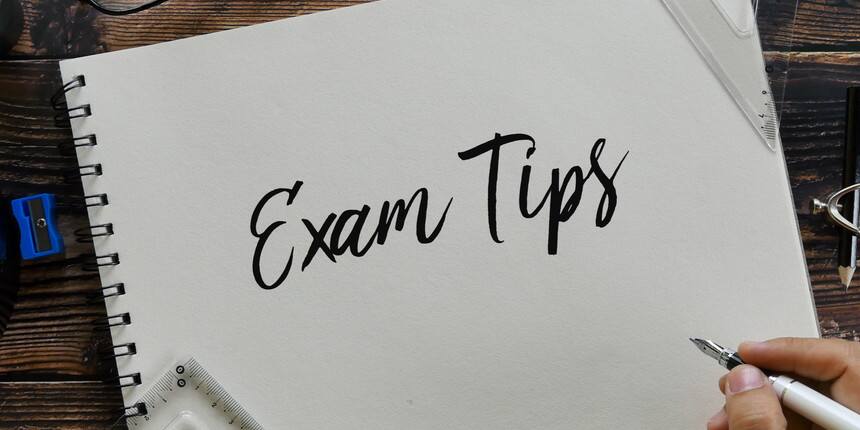 Exam Tips